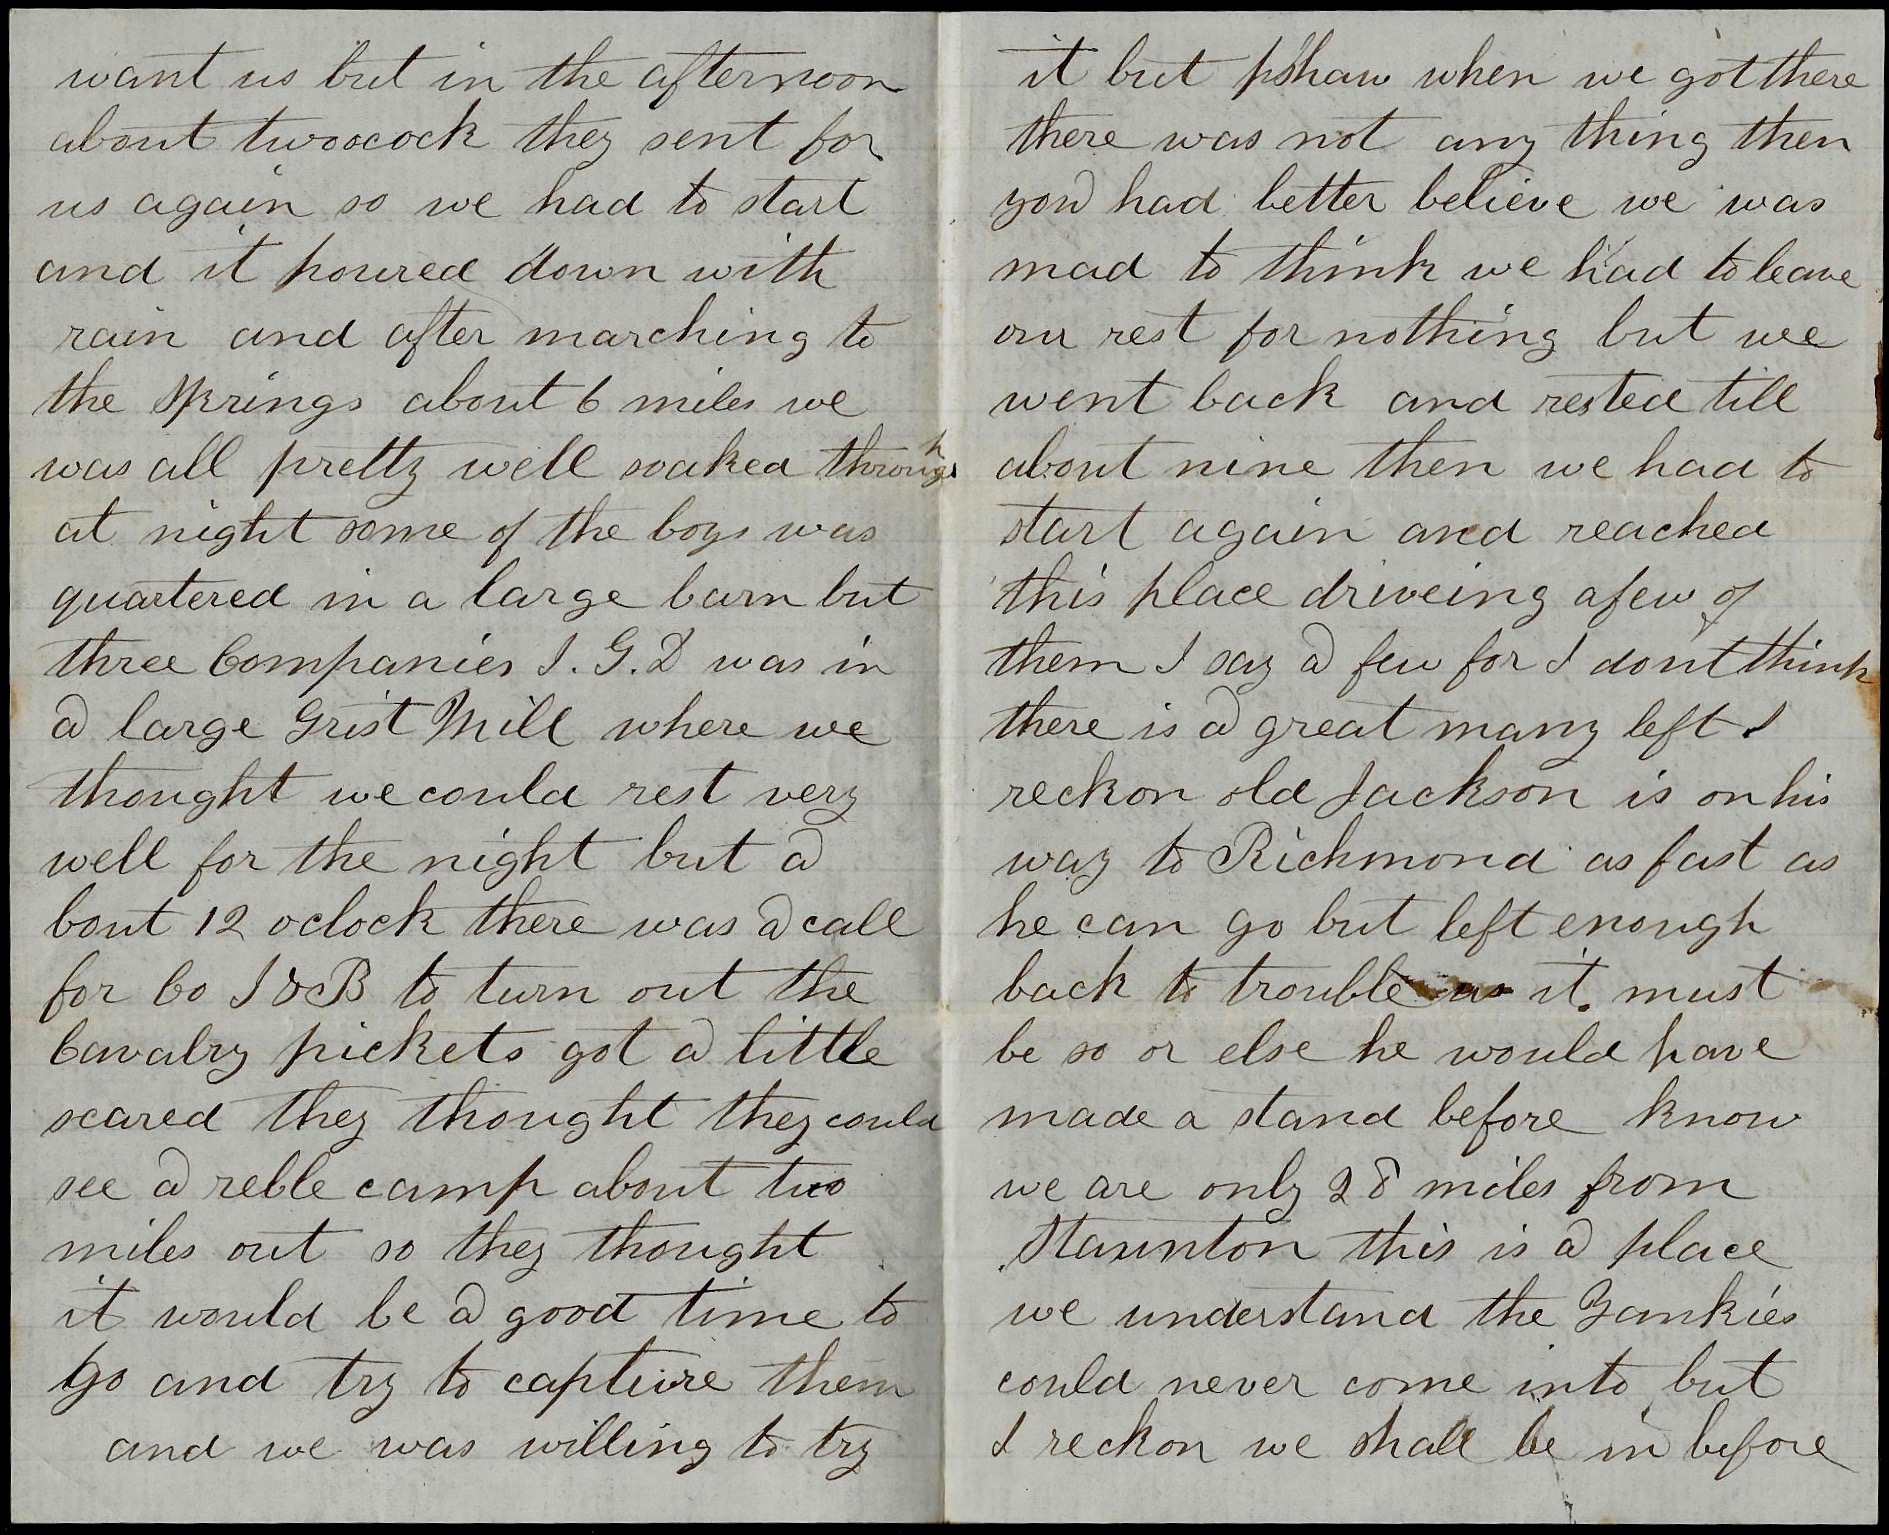 want us but in the afternoon
about twoocock they sent for
us again so we had to start
and it poured down with
rain and after marching to
the Springs about 6 miles we
was all pretty well soaked through
at night some of the boys was
quartered in a large barn but
three Companies I. G. D was in
a large Grist Mill where we
thought we could rest very
well for the night but a
bout 12 oclock there was a call
for Co I & B to turn out the
Cavalry pickets got a little
scared they thought they could
see a reble camp about two
miles out so they thought
it would be a good time to
go and try to capture them
and we was willing to try
it but pshaw when we got there
there was not any thing then
you had better believe we was
mad to think we had to leave
our rest for nothing but we
went back and rested till
about nine then we had to
start again and reached
this place driveing a few of
them I say a few for I dont think
there is a great many left I
reckon old Jackson is on his
way to Richmond as fast as
he can go but left enough
back to trouble us it must
be so or else he would have
made a stand before know
we are only 28 miles from
Staunton this is a place
we understand the Yankies
could never come into but
I reckon we shall be in before